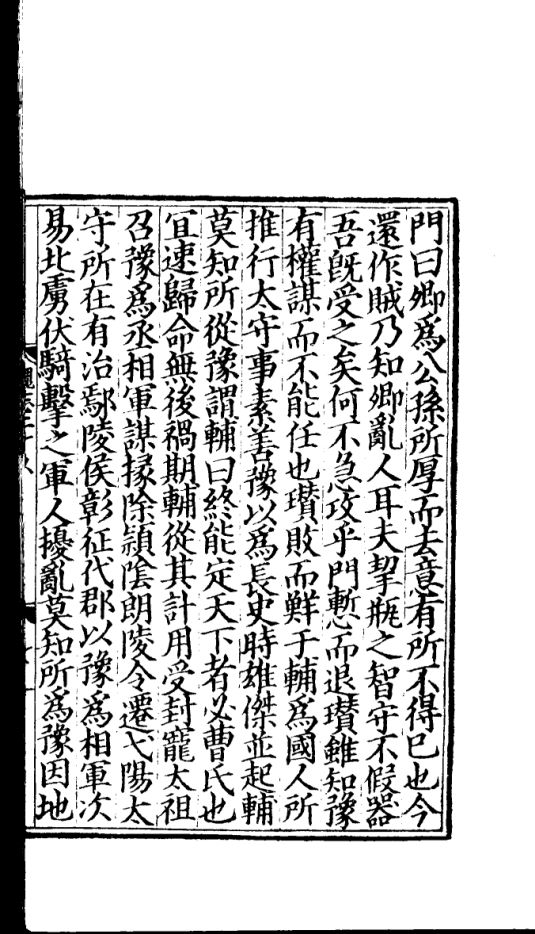 門曰卿爲公孫所厚而去意有所不得已也今
還作賊乃知卿亂人耳夫挈瓶之智守不假器
吾既受之矣何不急攻乎門慙而退瓚雖知豫
有權謀而不能任也瓚敗而鮮于輔爲國人所
推行太守事素善豫以爲長史時雄傑並起輔
莫知所從豫謂輔曰終能定天下者必曹氏也
宜速歸命無後禍期輔從其計用受封寵太祖
召豫爲丞相軍謀掾除潁陰朗陵令遷弋陽太
守所在有治鄢陵侯彰征代郡以豫爲相軍次
易北虜伏騎擊之軍人擾亂莫知所爲豫因地